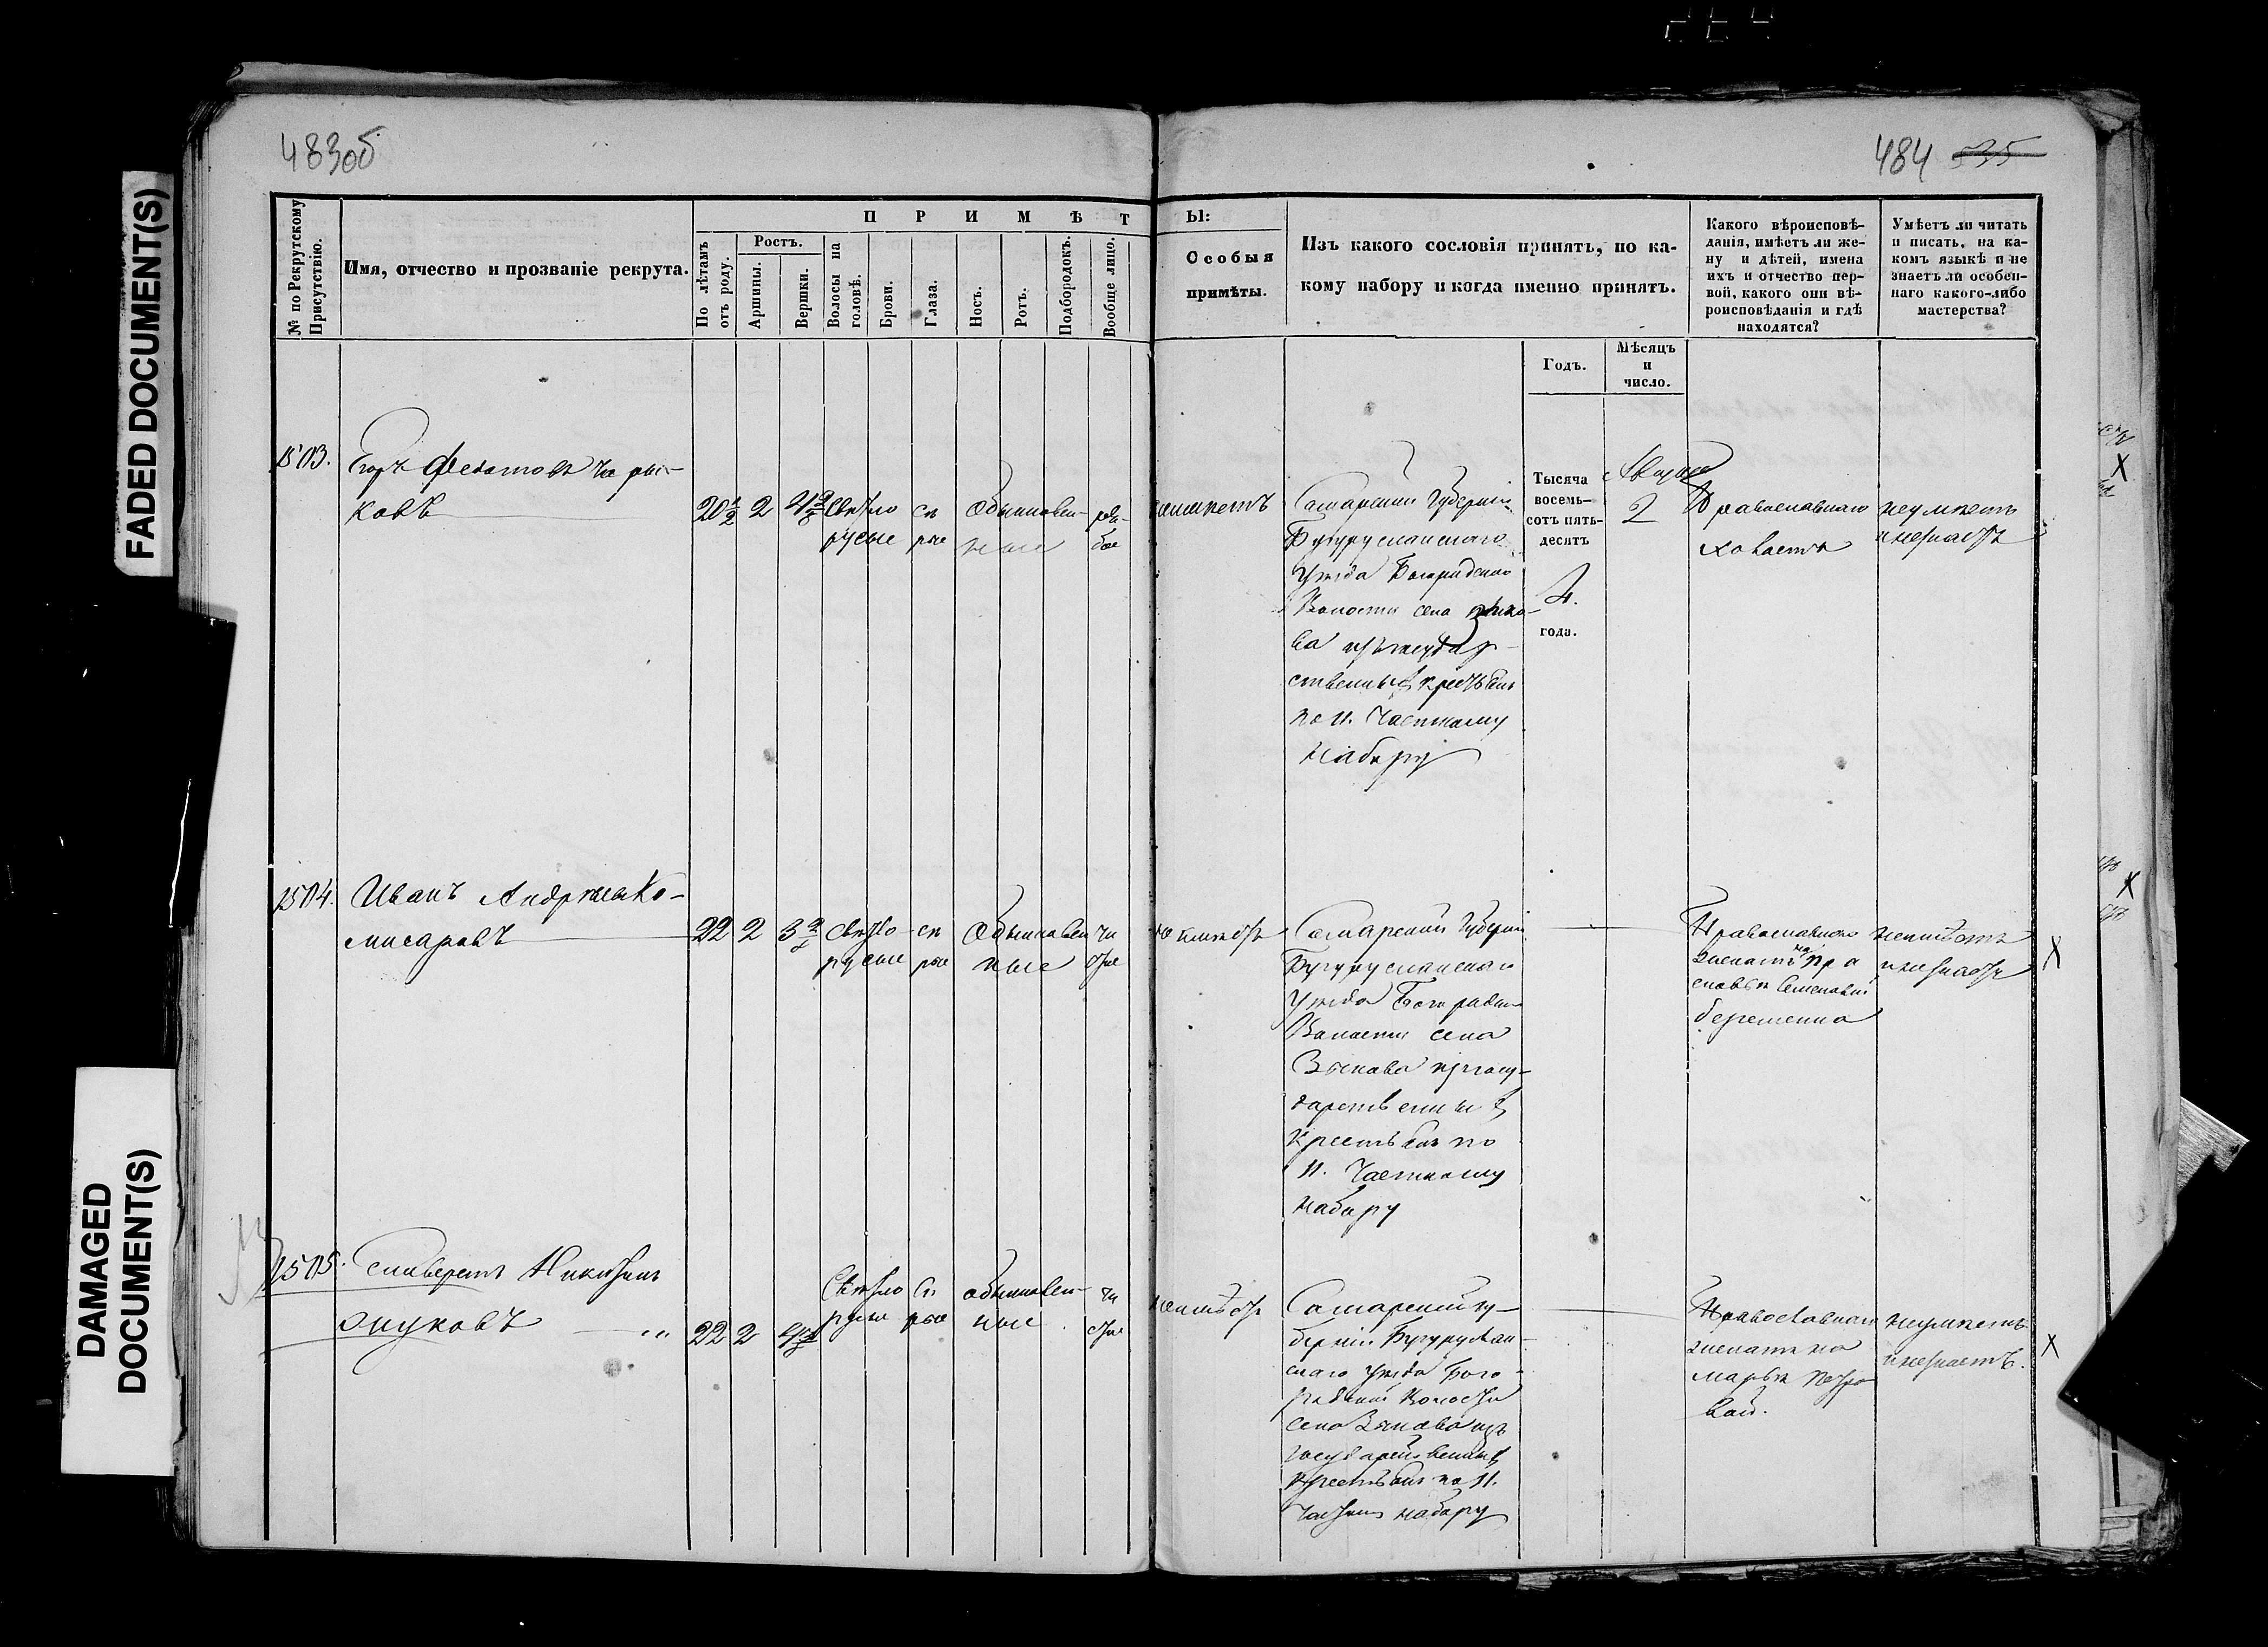 483об
484 535
FADED DOCUMENT(S)
DAMAGED
DOCUMENT(S)
№ по Рекрутскому
Присутствію.
Имя, отчество и прозваніе рекрута.
ПРИМѢТ
Ы:
По лѣтамъ
отъ роду.
Ростъ.
Аршины.
Вершки.
Волосы на
головѣ.
Брови.
Глаза.
Носъ.
Ротъ.
Подбородокъ.
Вообще лицо.
Особыя
примѣты.
Изъ какого сословія принятъ, по ка-
кому набору и когда именно принятъ.
Годъ.
Мѣсяцъ
и
число.
Какого вѣроисповѣ-
данія, имѣетъ ли же-
ну и дѣтей, имена
ихъ и отчество пер-
вой, какого они вѣ-
роисповѣданія и гдѣ
находятся?
Умѣетъ ли читать
и писать, на ка-
комъ языкѣ и не
знаетъ ли особен-
наго какого-либо
мастерства?
1503.
Егоръ Федотовъ
ковъ
20 1/2
2
Свѣтло
русые
сѣ
рые
Обыкновен-
ные
ря-
бое
неимѣетъ
Самарской Губерніи
Бугурусланскаго
Уѣзда
Волости села
ва изъ государ-
ственныхъ крестьянъ
по 11. Частному
набору
Тысяча
восемь-
сотъ пять-
десятъ
4.
года.
2
Православнаго
холостъ
неумѣетъ
и незнаетъ
1504.
Иванъ Андреевъ Ко-
мисаровъ
22
2
Свѣтло-
русые
сѣ
рые
Обыкновен
ные
чи
стое
неимѣетъ
Самарской Губерніи
Бугурусланскаго
Уѣзда
Волости села
Зыкова изъ госу-
дарственныхъ
крестьянъ по
11. Частному
набору
Православнаго
женатъ на Пра
сковьи Семеновой
беременна
неумѣетъ
и незнаетъ
X
1505.
Никитинъ
22
2
Свѣтло
русые
Сѣ
рые
обыкновен-
ные
чи
стое
неимѣетъ
Самарской гу-
берніи Бугуруслан-
скаго Уѣзда Бого-
Волости
села Зыкова изъ
государственныхъ
крестьянъ по 11.
набору
Православнаго
женатъ на
Марьи Петро
вой.
неумѣетъ
и незнаетъ.
X
X
X